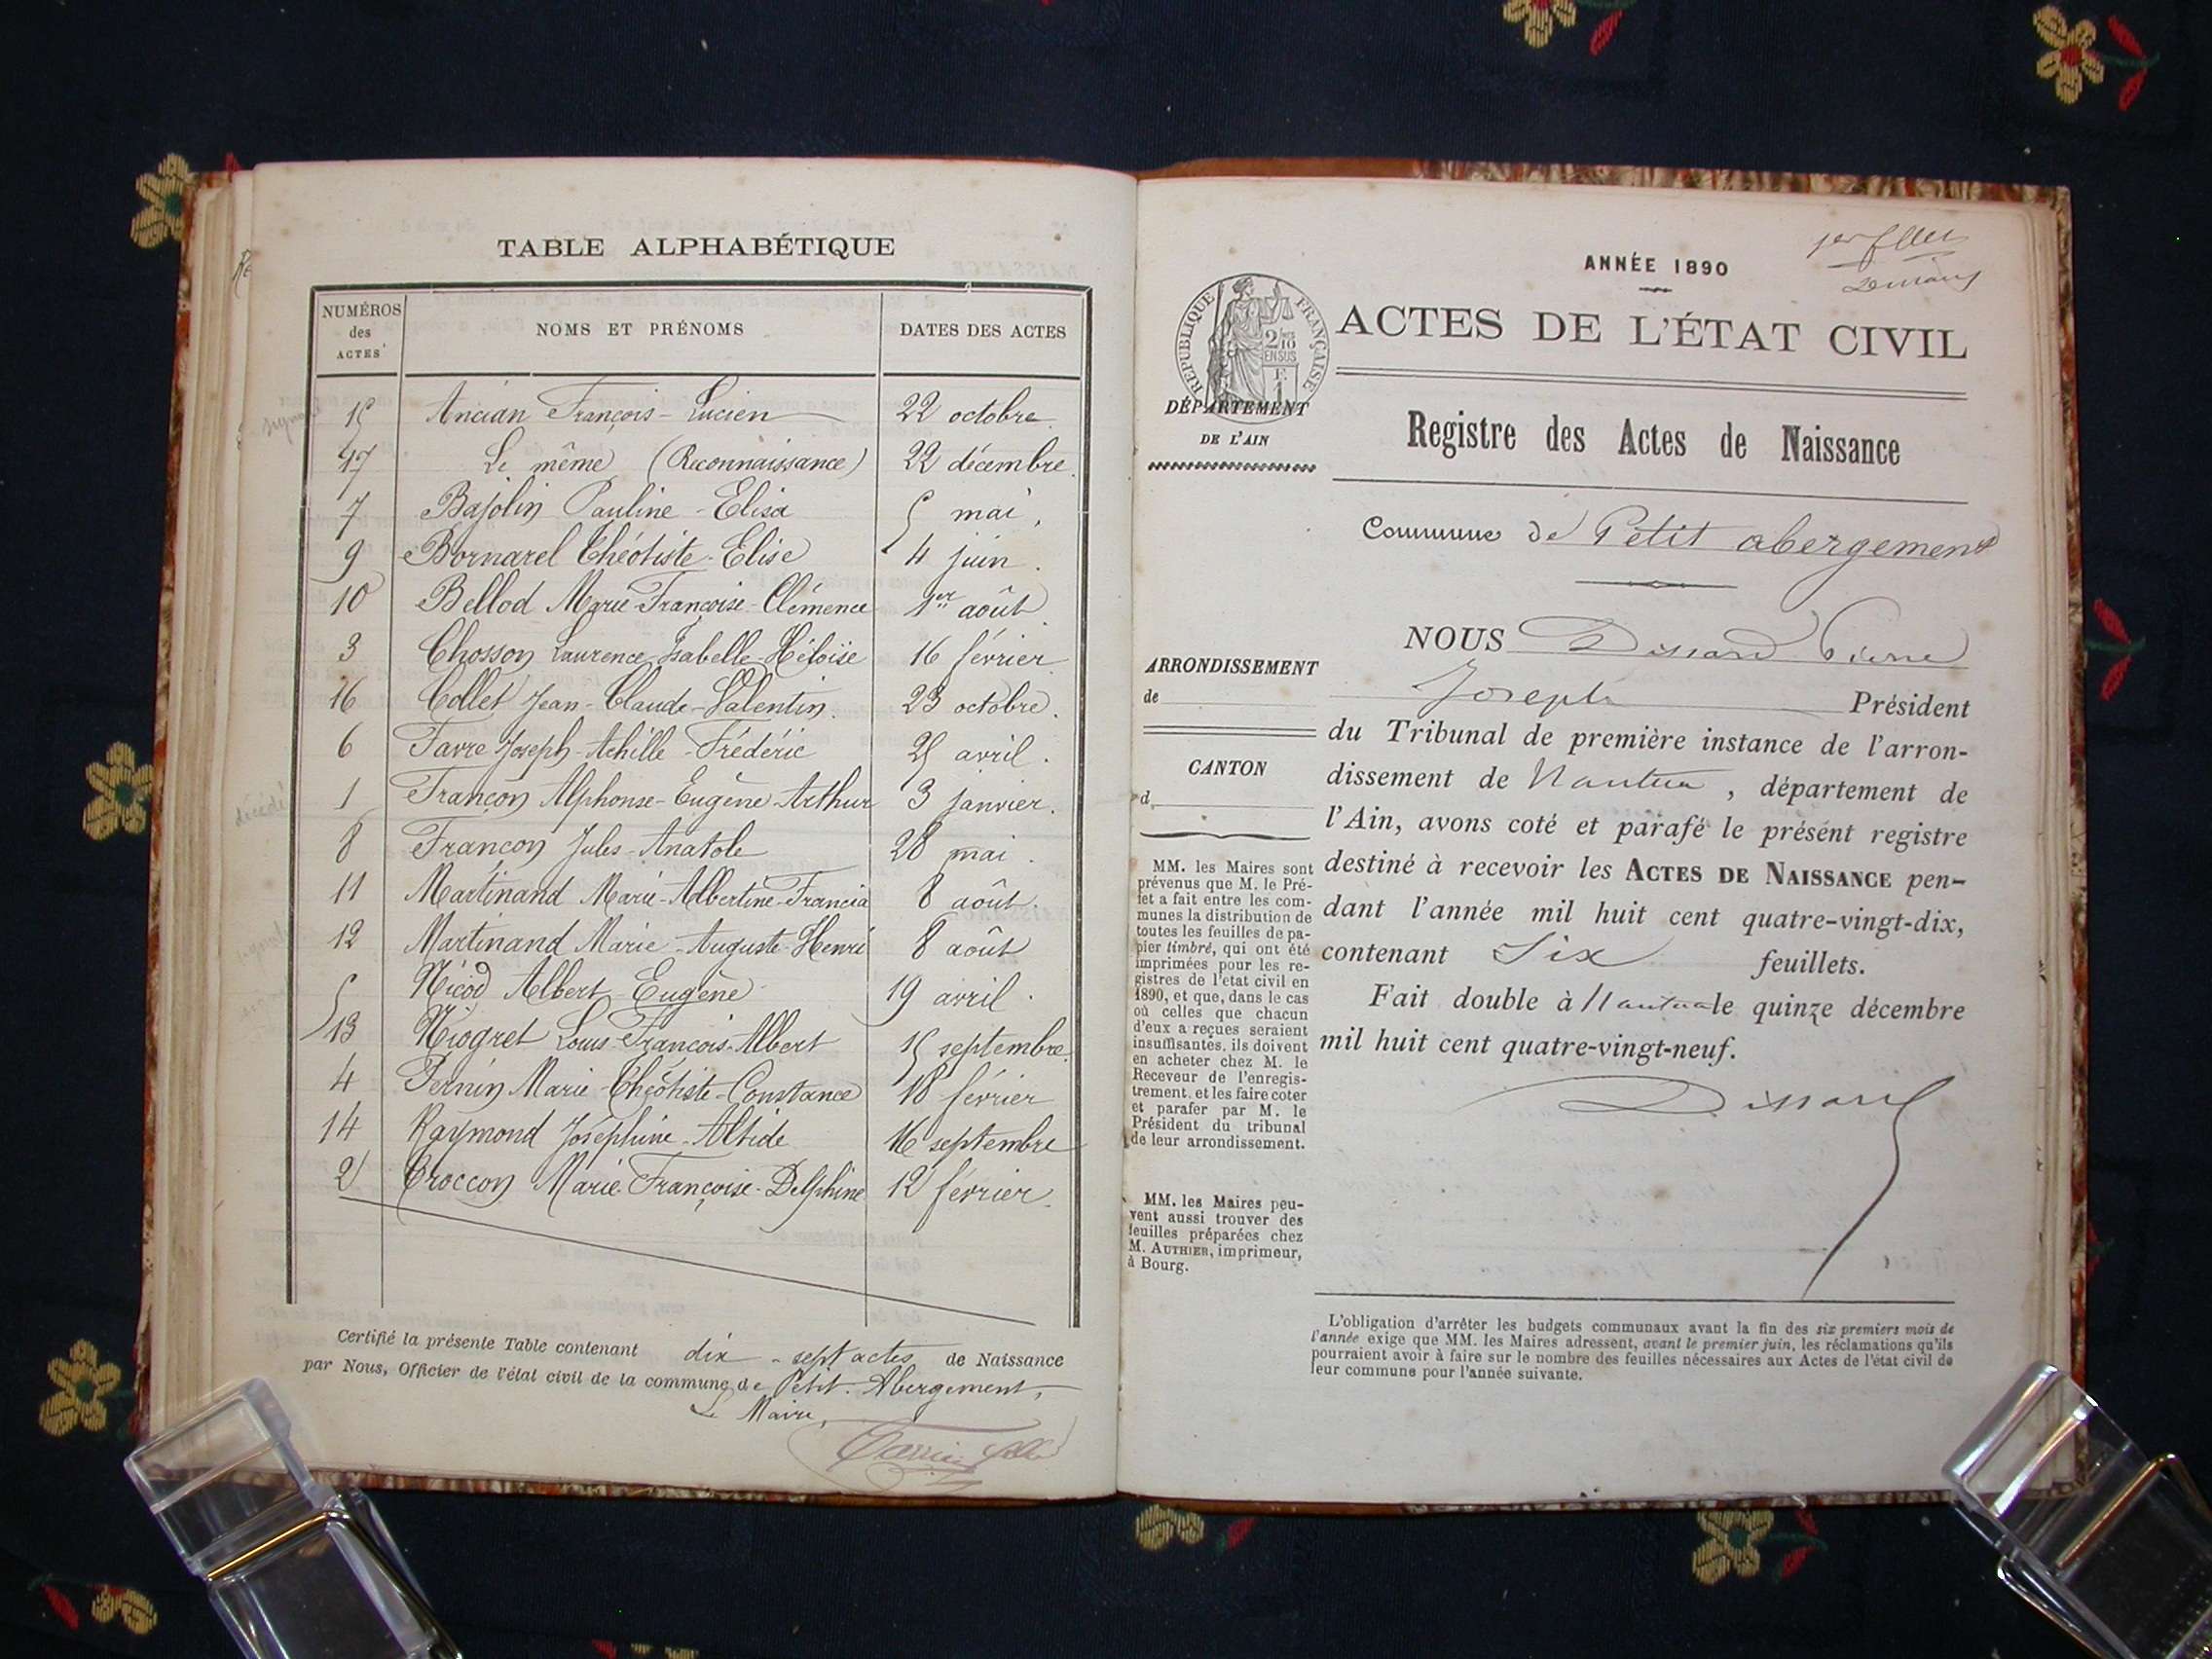 TABLE ALPHABÉTIQUE
NUMÉROS des ACTES NOMS ET PRÉNOMS DATES DES ACTES
15 Ancian François-Lucien 22 octobre.
17 Le même (Reconnaissance) 22 décembre.
7 Bajolin Pauline-Elisa 5 mai.
9 Bornarel Théotiste-Elise 4 juin.
10 Bellod Marie-Françoise-Clémence 1er août.
3 Chosson Laurence-Isabelle-Héloïse 16 février
16 Collet Jean-Claude-Valentin. 23 octobre.
6 Favre Joseph-Achille-Frédéric 25 avril.
décédé 1 Françon Alphonse-Eugène-Arthur 3 janvier.
8 Françon Jules-Anatole 28 mai.
11 Martinand Marie-Albertine-Francia 8 août.
12 Martinand Marie-Auguste-Henri 8 août
5 Nicod Albert-Eugène 19 avril.
13 Niogret Louis-François-Albert 15 septembre.
4 Pernin Marie-Théotiste-Constance 18 février
14 Raymond Joséphine-Altide 16 septembre
2 Troccon Marie-Françoise-Delphine 12 février.
Certifié la présente Table contenant dix-sept actes de Naissance
par Nous, Officier de l'état civil de la commune de Petit-Abergement,
Le Maire,
ANNÉE 1890
RÉPUBLIQUE FRANÇAISE
2/10 EN SUS
F. 1
ACTES DE L'ÉTAT CIVIL
DÉPARTEMENT
DE L'AIN
Registre des Actes de Naissance
Commune de Petit abergement
NOUS Dissard Pierre
Joseph Président
du Tribunal de première instance de l'arron-
dissement de Nantua, département de
l'Ain, avons coté et parafé le présent registre
destiné à recevoir les ACTES DE NAISSANCE pen-
dant l'année mil huit cent quatre-vingt-dix,
contenant Six feuillets.
Fait double à Nantua le quinze décembre
mil huit cent quatre-vingt-neuf.
Dissard
ARRONDISSEMENT
de
CANTON
d
MM. les Maires sont
prévenus que M. le Pré-
fet a fait entre les com-
munes la distribution de
toutes les feuilles de pa-
pier timbré, qui ont été
imprimées pour les re-
gistres de l'état civil en
1890, et que, dans le cas
où celles que chacun
d'eux a reçues seraient
insuffisantes, ils doivent
en acheter chez M. le
Receveur de l'enregis-
trement, et les faire coter
et parafer par M. le
Président du tribunal
de leur arrondissement.
MM. les Maires peu-
vent aussi trouver des
feuilles préparées chez
M. AUTHIER, imprimeur,
à Bourg.
L'obligation d'arrêter les budgets communaux avant la fin des six premiers mois de
l'année exige que MM. les Maires adressent, avant le premier juin, les réclamations qu'ils
pourraient avoir à faire sur le nombre des feuilles nécessaires aux Actes de l'état civil de
leur commune pour l'année suivante.